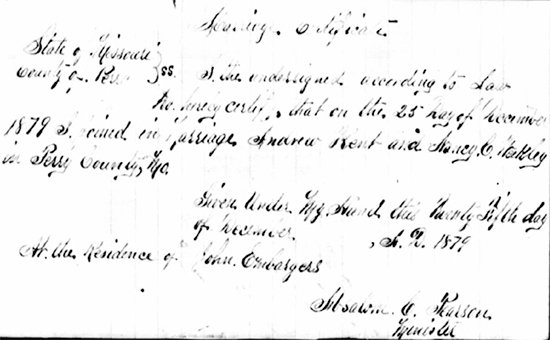 Marriage Certificate
State of Missouri
County of Perry } ss. I, the undersigned according to Law
do hereby certify, that on the 25 Day of December
1879 I joined in Marriage Andrew Kent and Nancy C.
in Perry County, Mo.
Given Under My Hand this Twenty Fifth day
of December, A. D. 1879
At the Residence of John Embargers
Absalom C. Pearson
Minister